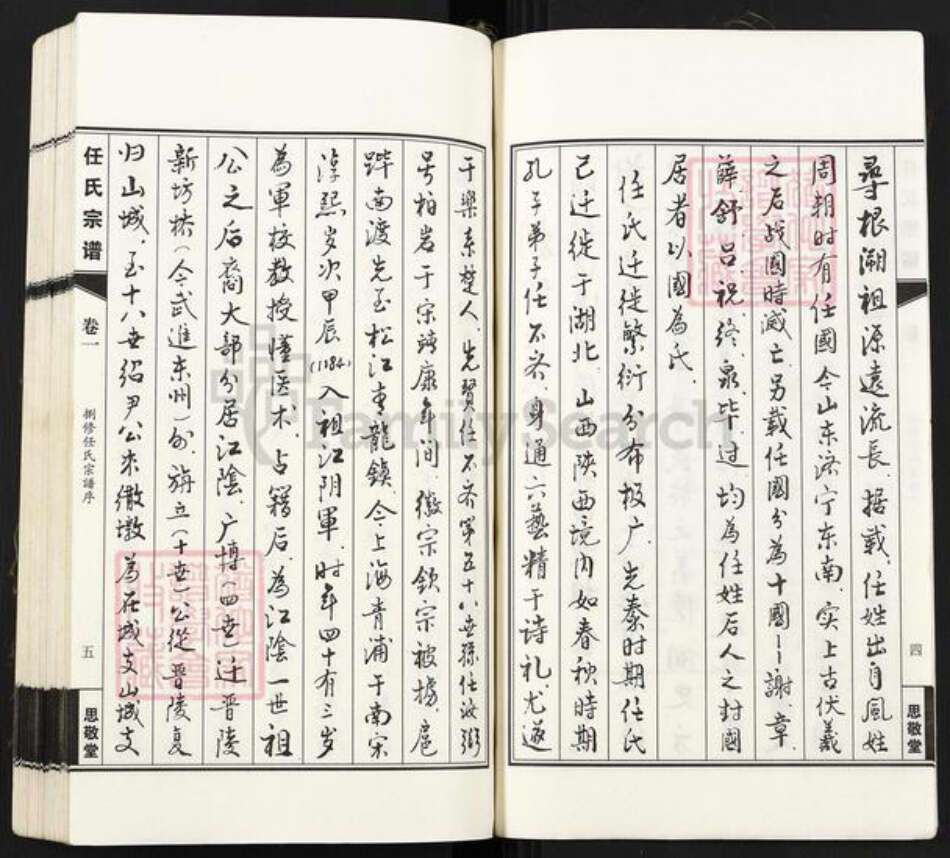 尋根溯祖源遠流長．据载．任姓出自風姓
周朝时有任國今山东济宁东南．实上古伏羲
之后战国時滅亡．另载任國分為十國——謝．章．
薛．舒．吕．祝．终．泉．毕．过．均為任姓后人之封國
居者以國為氏．
任氏迁徙繁衍分布极广．先秦时期任氏
已迁徙于湖北．山西陕西境内如春秋時期
孔子弟子任不齐．身通六藝精于诗礼．尤邃
四
思敬堂
于樂系楚人．先賢任不齐第五十八世孫任汝弼
号柏岩于宋靖康年间．徽宗钦宗被掳．扈
跸南渡先至松江青龍鎮．今上海青浦于南宋
淳熙岁次甲辰(1184)入祖江阴軍．时年四十有三岁
為軍校教授懂医术．占籍后為江陰一世祖
公之后裔大部分居江陰．广博(四世)迁晋陵
新坊桥(今武進东州)别．旃立(十世)公從晋陵复
归山城．至十八世绍尹公来缴墩為在城支山城支
任氏宗谱
卷一
捌修任氏宗譜序
五
思敬堂
FamilySearch